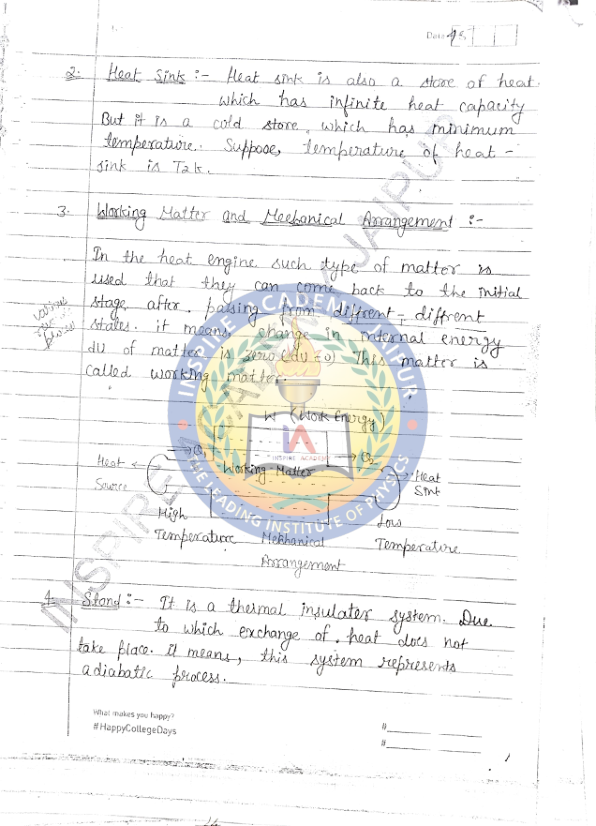 Date
2. Heat Sink :- Heat sink is also a store of heat.
which has infinite heat capacity
But it is a cold store, which has minimum
temperature. Suppose, temperature of heat -
sink is T2k.
3. Working Matter and Mechanical Arrangement :-
In the heat engine such type of matter is
used that they can come back to the initial
stage after. passing from diffrent - diffrent
states. it means, change in internal energy
du of matter is zero (du = 0) This matter is
called working matter.
W (Work Energy)
→ Q1
→ Q2
Heat
Source
Working Matter
Heat
Sink
High
Temperature
Mechanical
Arrangement
Low
Temperature
4. Stand :- It is a thermal insulater system. Due
to which exchange of heat does not
take place. it means, this system represents
adiabatic process.
What makes you happy?
#HappyCollegeDays
#
#
INSPIRE ACADEMY JAIPUR
INSPIRE ACADEMY JAIPUR
IA
INSPIRE ACADEMY
THE LEADING INSTITUTE OF PHYSICS